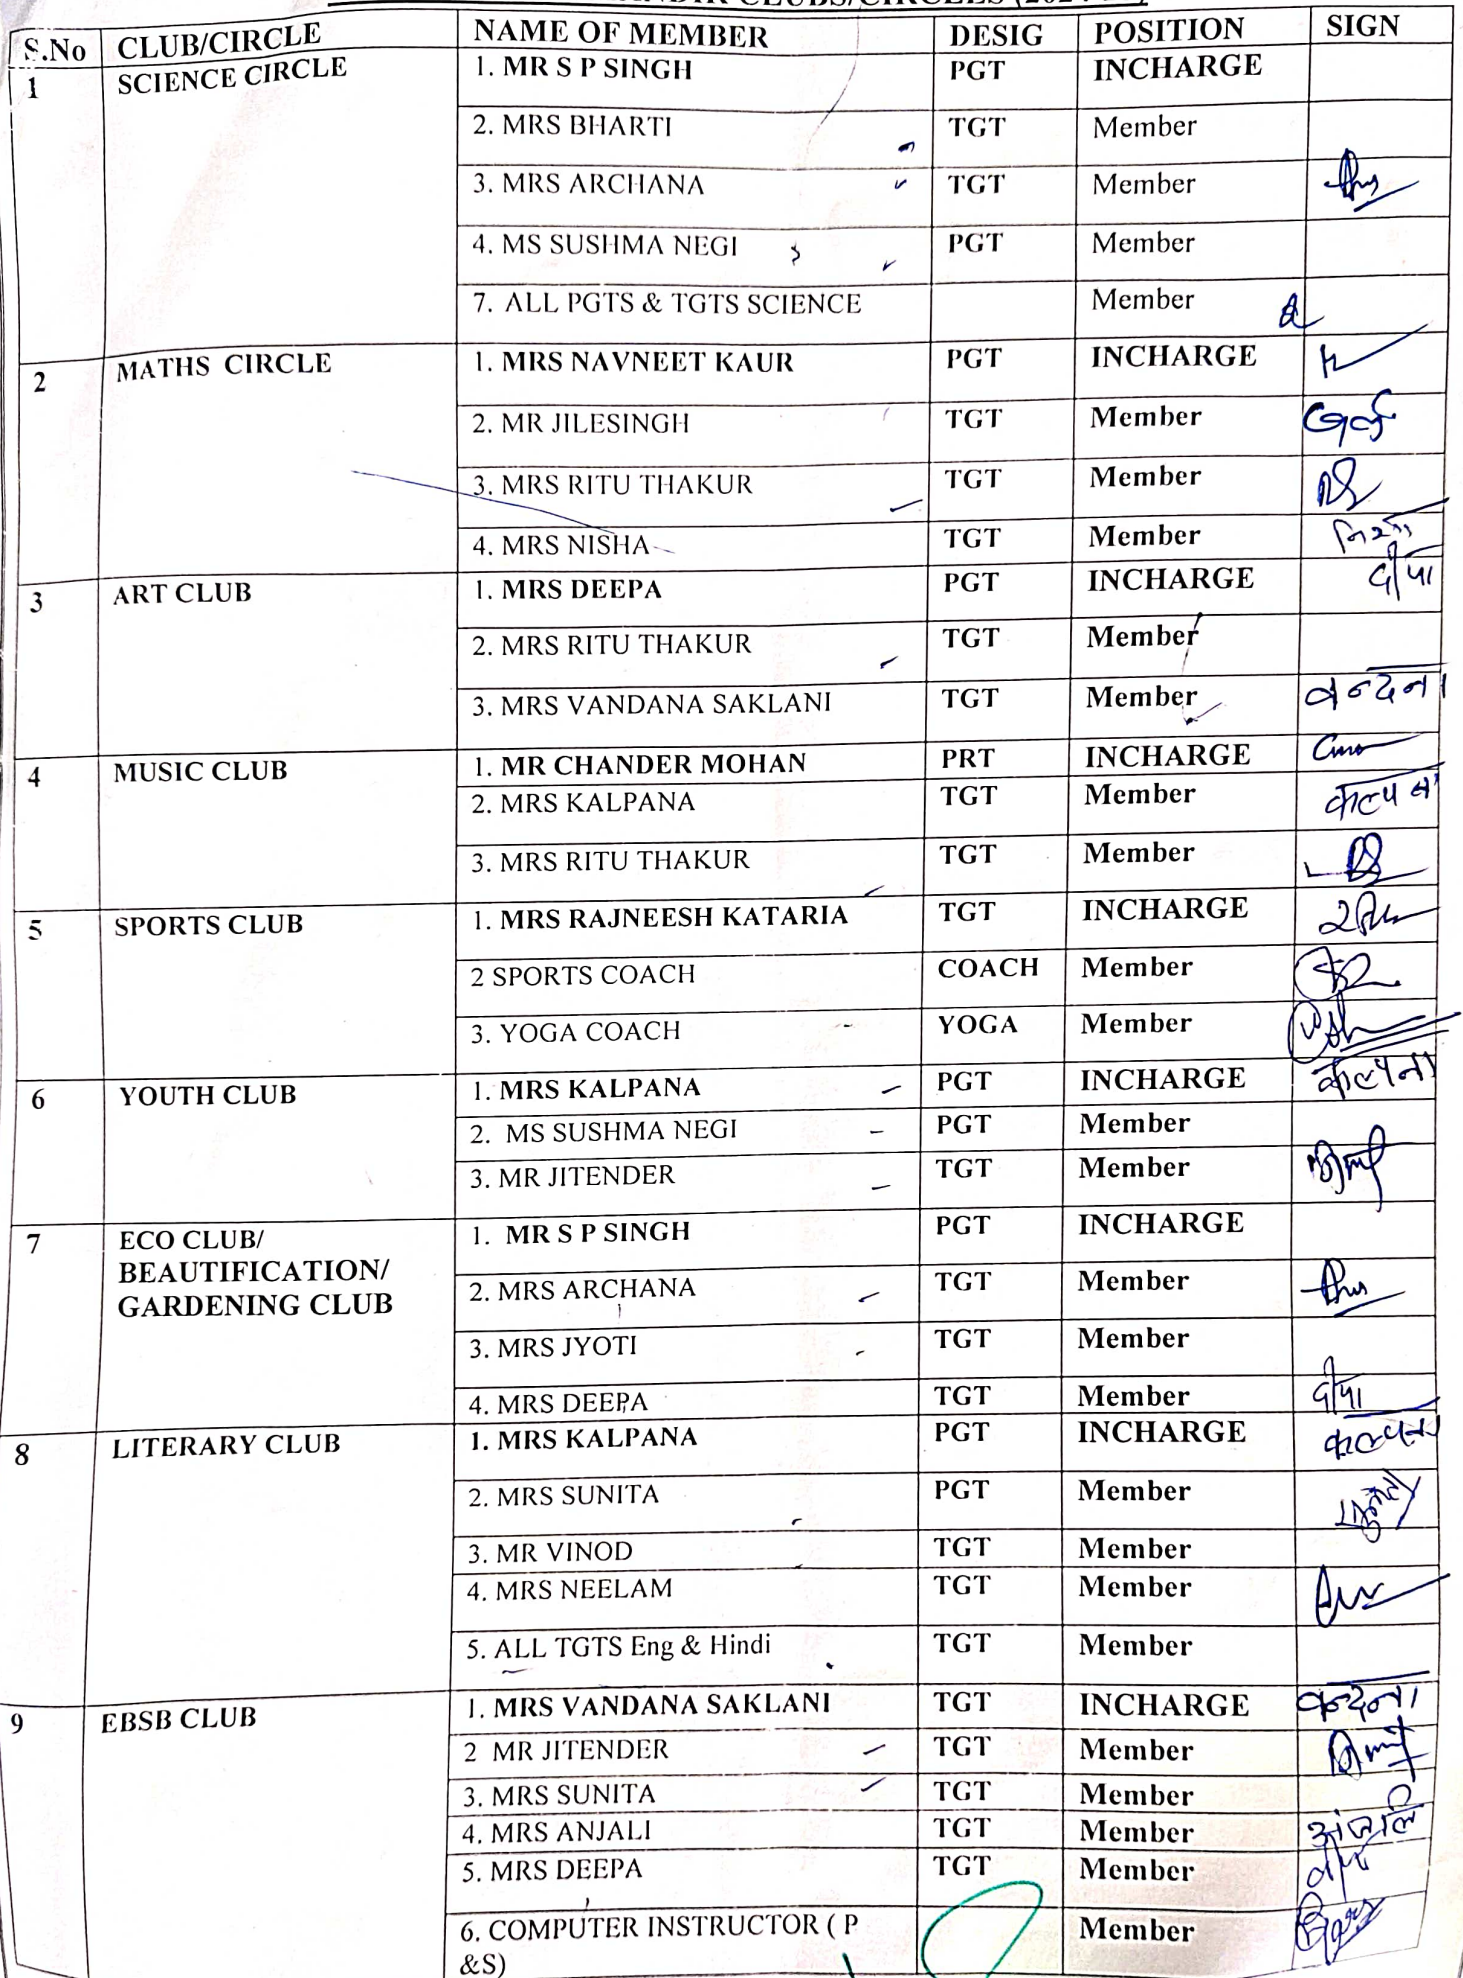 CLUBS/CIRCLES
S.No CLUB/CIRCLE NAME OF MEMBER DESIG POSITION SIGN
1 SCIENCE CIRCLE 1. MR S P SINGH PGT INCHARGE
2. MRS BHARTI TGT Member
3. MRS ARCHANA TGT Member
4. MS SUSHMA NEGI PGT Member
7. ALL PGTS & TGTS SCIENCE Member
2 MATHS CIRCLE 1. MRS NAVNEET KAUR PGT INCHARGE
2. MR JILESINGH TGT Member
3. MRS RITU THAKUR TGT Member
4. MRS NISHA TGT Member
3 ART CLUB 1. MRS DEEPA PGT INCHARGE दीपा
2. MRS RITU THAKUR TGT Member
3. MRS VANDANA SAKLANI TGT Member वन्दना
4 MUSIC CLUB 1. MR CHANDER MOHAN PRT INCHARGE
2. MRS KALPANA TGT Member कल्पना
3. MRS RITU THAKUR TGT Member
5 SPORTS CLUB 1. MRS RAJNEESH KATARIA TGT INCHARGE
2 SPORTS COACH COACH Member
3. YOGA COACH YOGA Member
6 YOUTH CLUB 1. MRS KALPANA PGT INCHARGE कल्पना
2. MS SUSHMA NEGI PGT Member
3. MR JITENDER TGT Member
7 ECO CLUB/ 1. MR S P SINGH PGT INCHARGE
BEAUTIFICATION/ 2. MRS ARCHANA TGT Member
GARDENING CLUB
3. MRS JYOTI TGT Member
4. MRS DEEPA TGT Member दीपा
8 LITERARY CLUB 1. MRS KALPANA PGT INCHARGE कल्पना
2. MRS SUNITA PGT Member
3. MR VINOD TGT Member
4. MRS NEELAM TGT Member
5. ALL TGTS Eng & Hindi TGT Member
9 EBSB CLUB 1. MRS VANDANA SAKLANI TGT INCHARGE वन्दना
2 MR JITENDER TGT Member
3. MRS SUNITA TGT Member
4. MRS ANJALI TGT Member अंजलि
5. MRS DEEPA TGT Member
6. COMPUTER INSTRUCTOR ( P Member
&S)